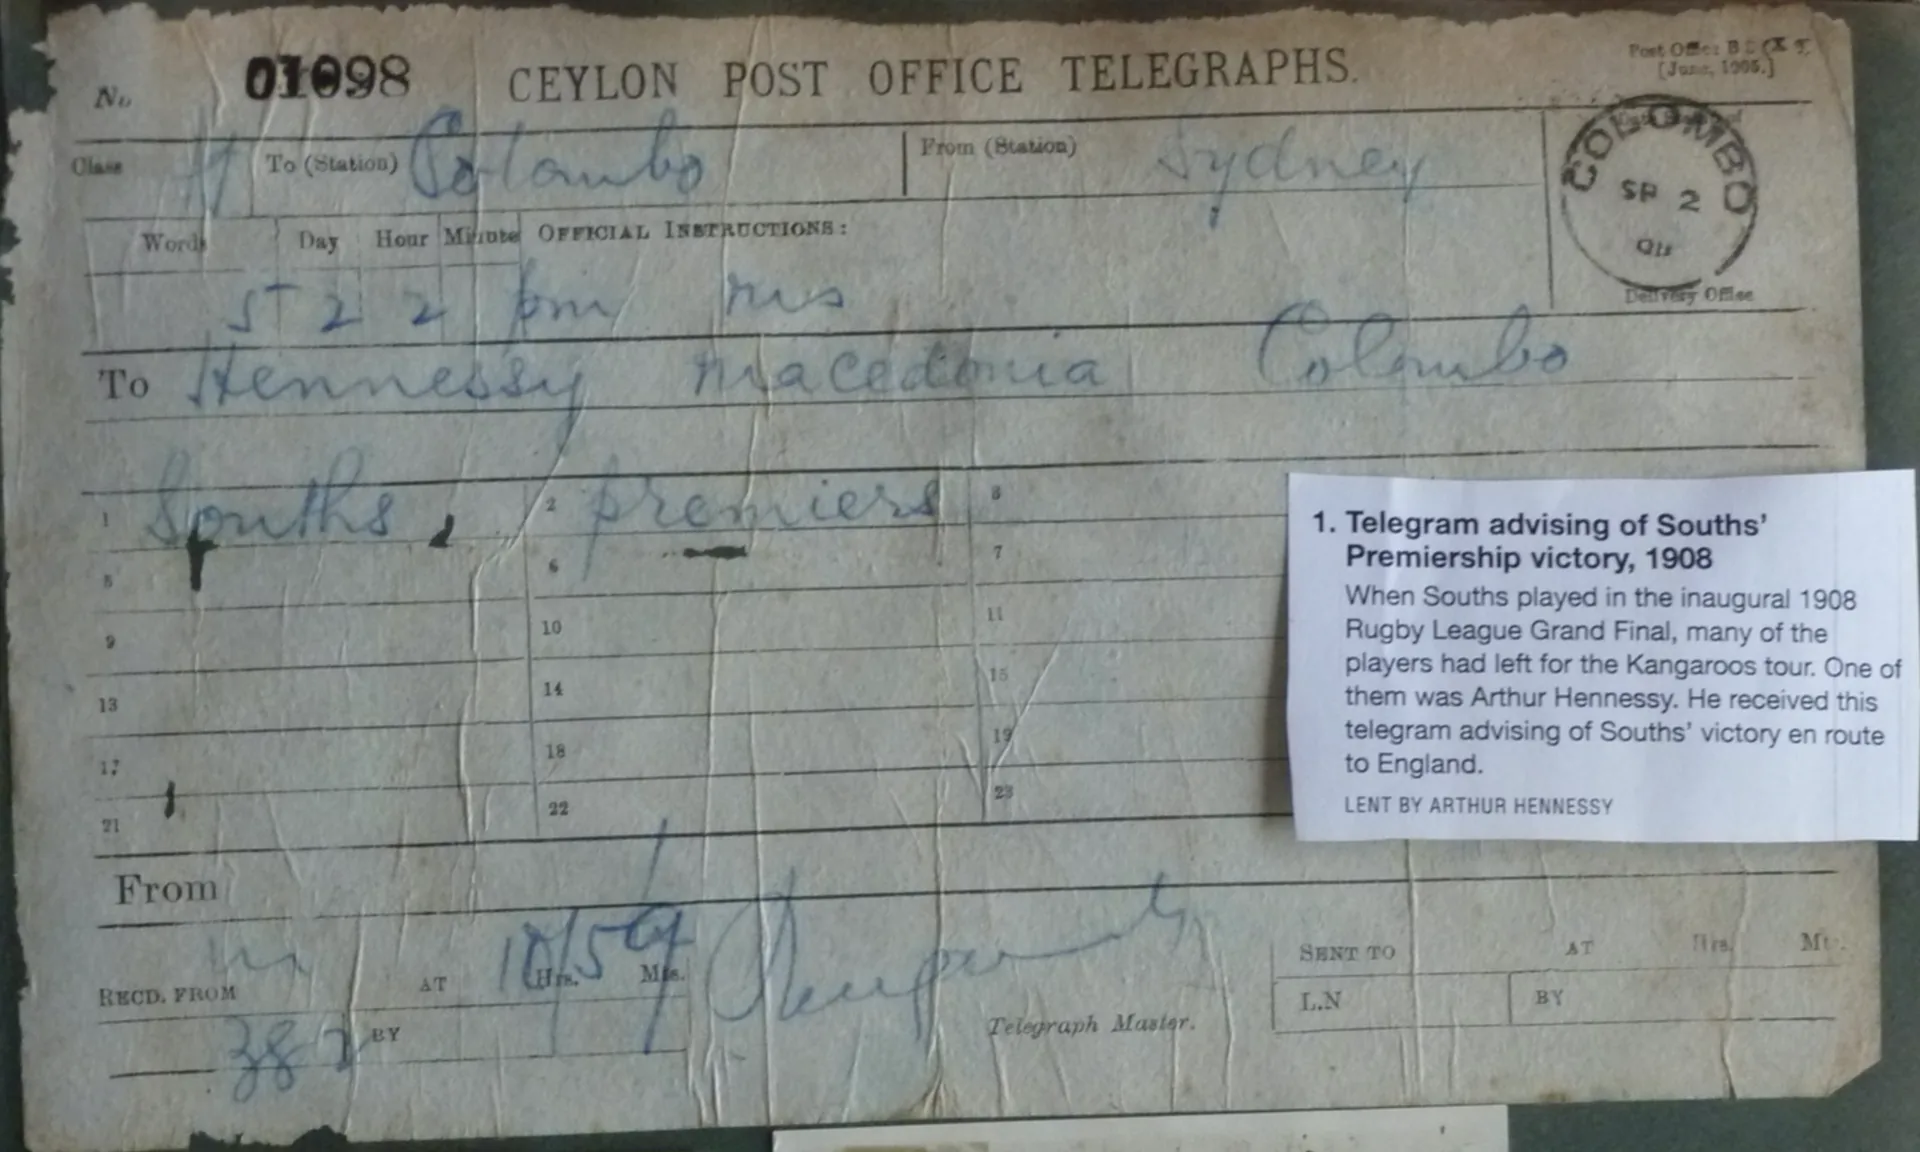 No 01098 CEYLON POST OFFICE TELEGRAPHS.
Post Office
[June, 1905.]
Class To (Station) Colombo From (Station) Sydney
COLOMBO
SP 2
Delivery Office
Words Day Hour Minute OFFICIAL INSTRUCTIONS:
5 2 2 pm
To Hennessy Macedonia Colombo
1 Souths 2 premiers 3
5 6 7
9 10 11
13 14 15
17 18 19
21 22 23
From
RECD. FROM AT Hrs. Mts.
BY
Telegraph Master.
SENT TO AT Hrs. Mts.
L.N BY
1. Telegram advising of Souths'
Premiership victory, 1908
When Souths played in the inaugural 1908
Rugby League Grand Final, many of the
players had left for the Kangaroos tour. One of
them was Arthur Hennessy. He received this
telegram advising of Souths' victory en route
to England.
LENT BY ARTHUR HENNESSY